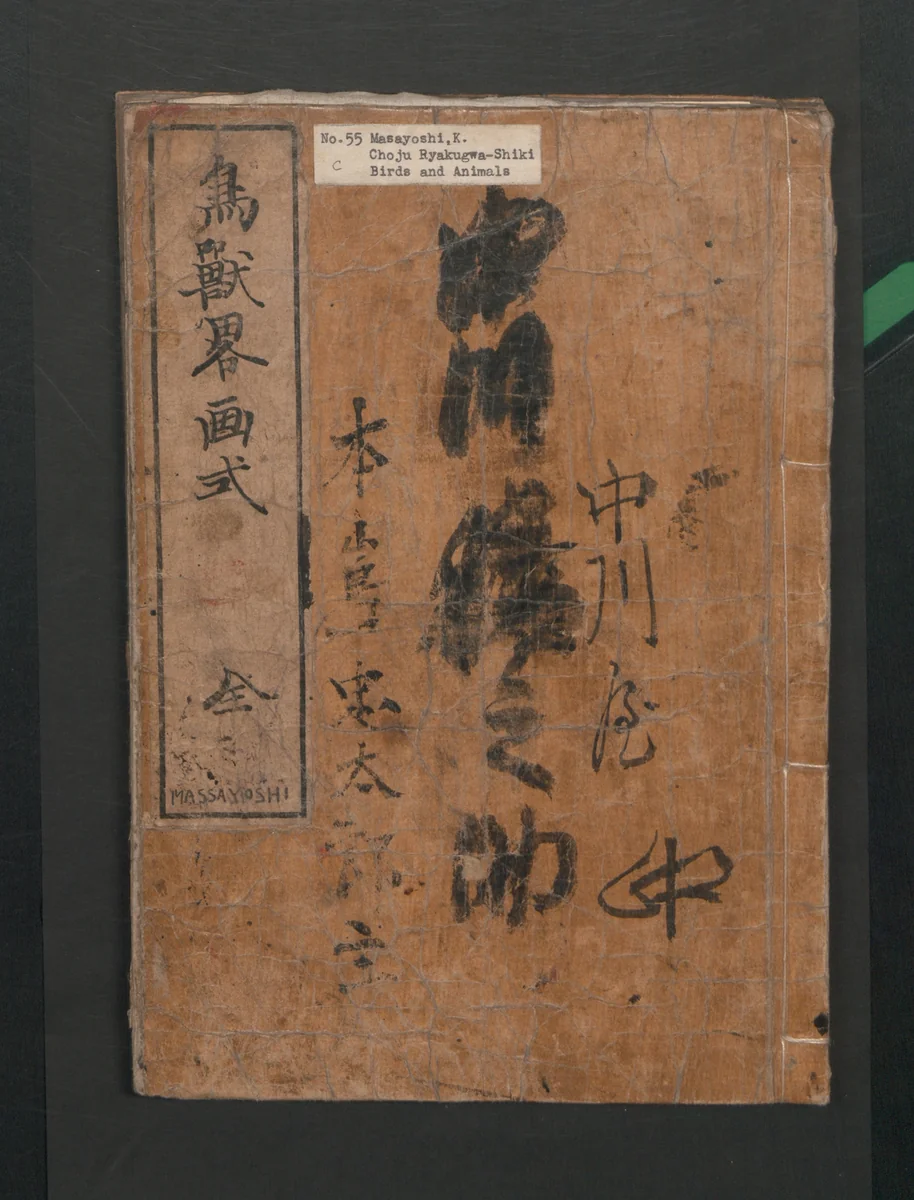 No.55 Masayoshi,K.
C Choju Ryakugwa-Shiki
Birds and Animals
中川屋
中
中川 之助
本島忠太郎主
鳥獸畧画式 全
MASSAYOSHI